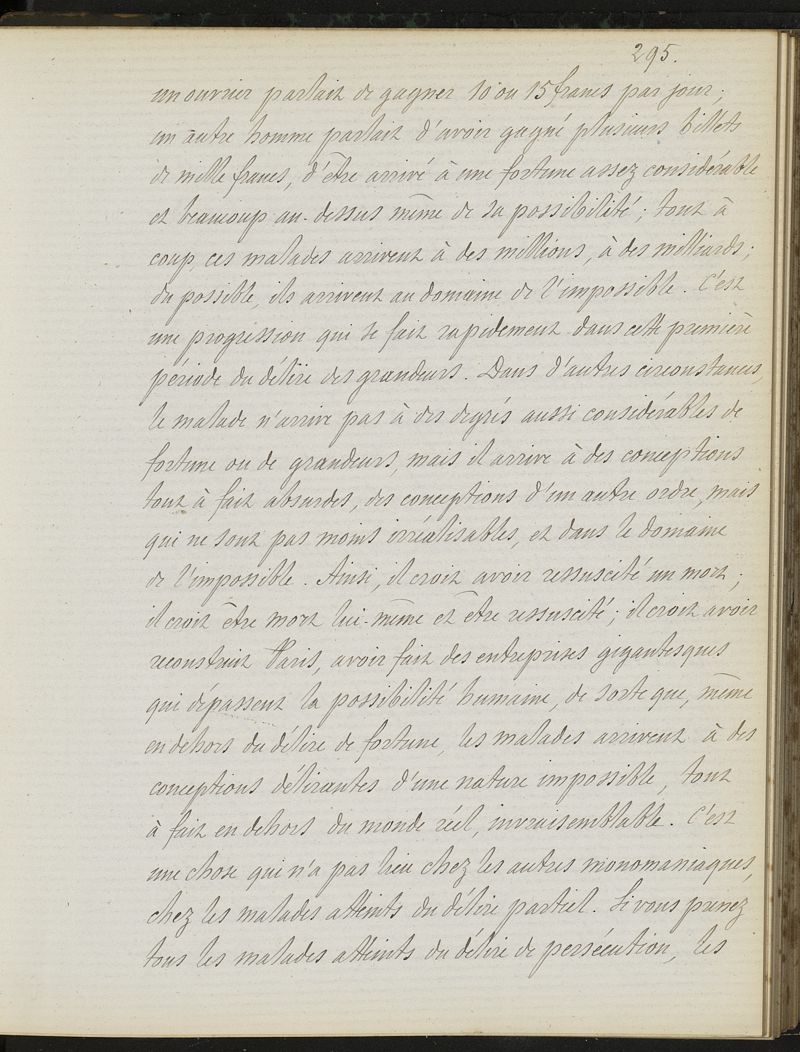 295.
un ouvrier parlait de gagner 10 ou 15 francs par jour ;
un autre homme parlait d'avoir gagné plusieurs billets
de mille francs, d'être arrivé à une fortune assez considérable
et beaucoup au-dessus même de sa possibilité ; tout à
coup, ces malades arrivent à des millions, à des milliards ;
du possible, ils arrivent au domaine de l'impossible. C'est
une progression qui se fait rapidement dans cette première
période du délire des grandeurs. Dans d'autres circonstances,
le malade n'arrive pas à des degrés aussi considérables de
fortune ou de grandeurs, mais il arrive à des conceptions
tout à fait absurdes, des conceptions d'un autre ordre, mais
qui ne sont pas moins irréalisables, et dans le domaine
de l'impossible. Ainsi, il croit avoir ressuscité un mort ;
il croit être mort lui-même et être ressuscité ; il croit avoir
reconstruit Paris, avoir fait des entreprises gigantesques
qui dépassent la possibilité humaine, de sorte que, même
en dehors du délire de fortune, les malades arrivent à des
conceptions délirantes d'une nature impossible, tout
à fait en dehors du monde réel, invraisemblable. C'est
une chose qui n'a pas lieu chez les autres monomaniaques,
chez les malades atteints du délire partiel. Si vous prenez
tous les malades atteints du délire de persécution, les